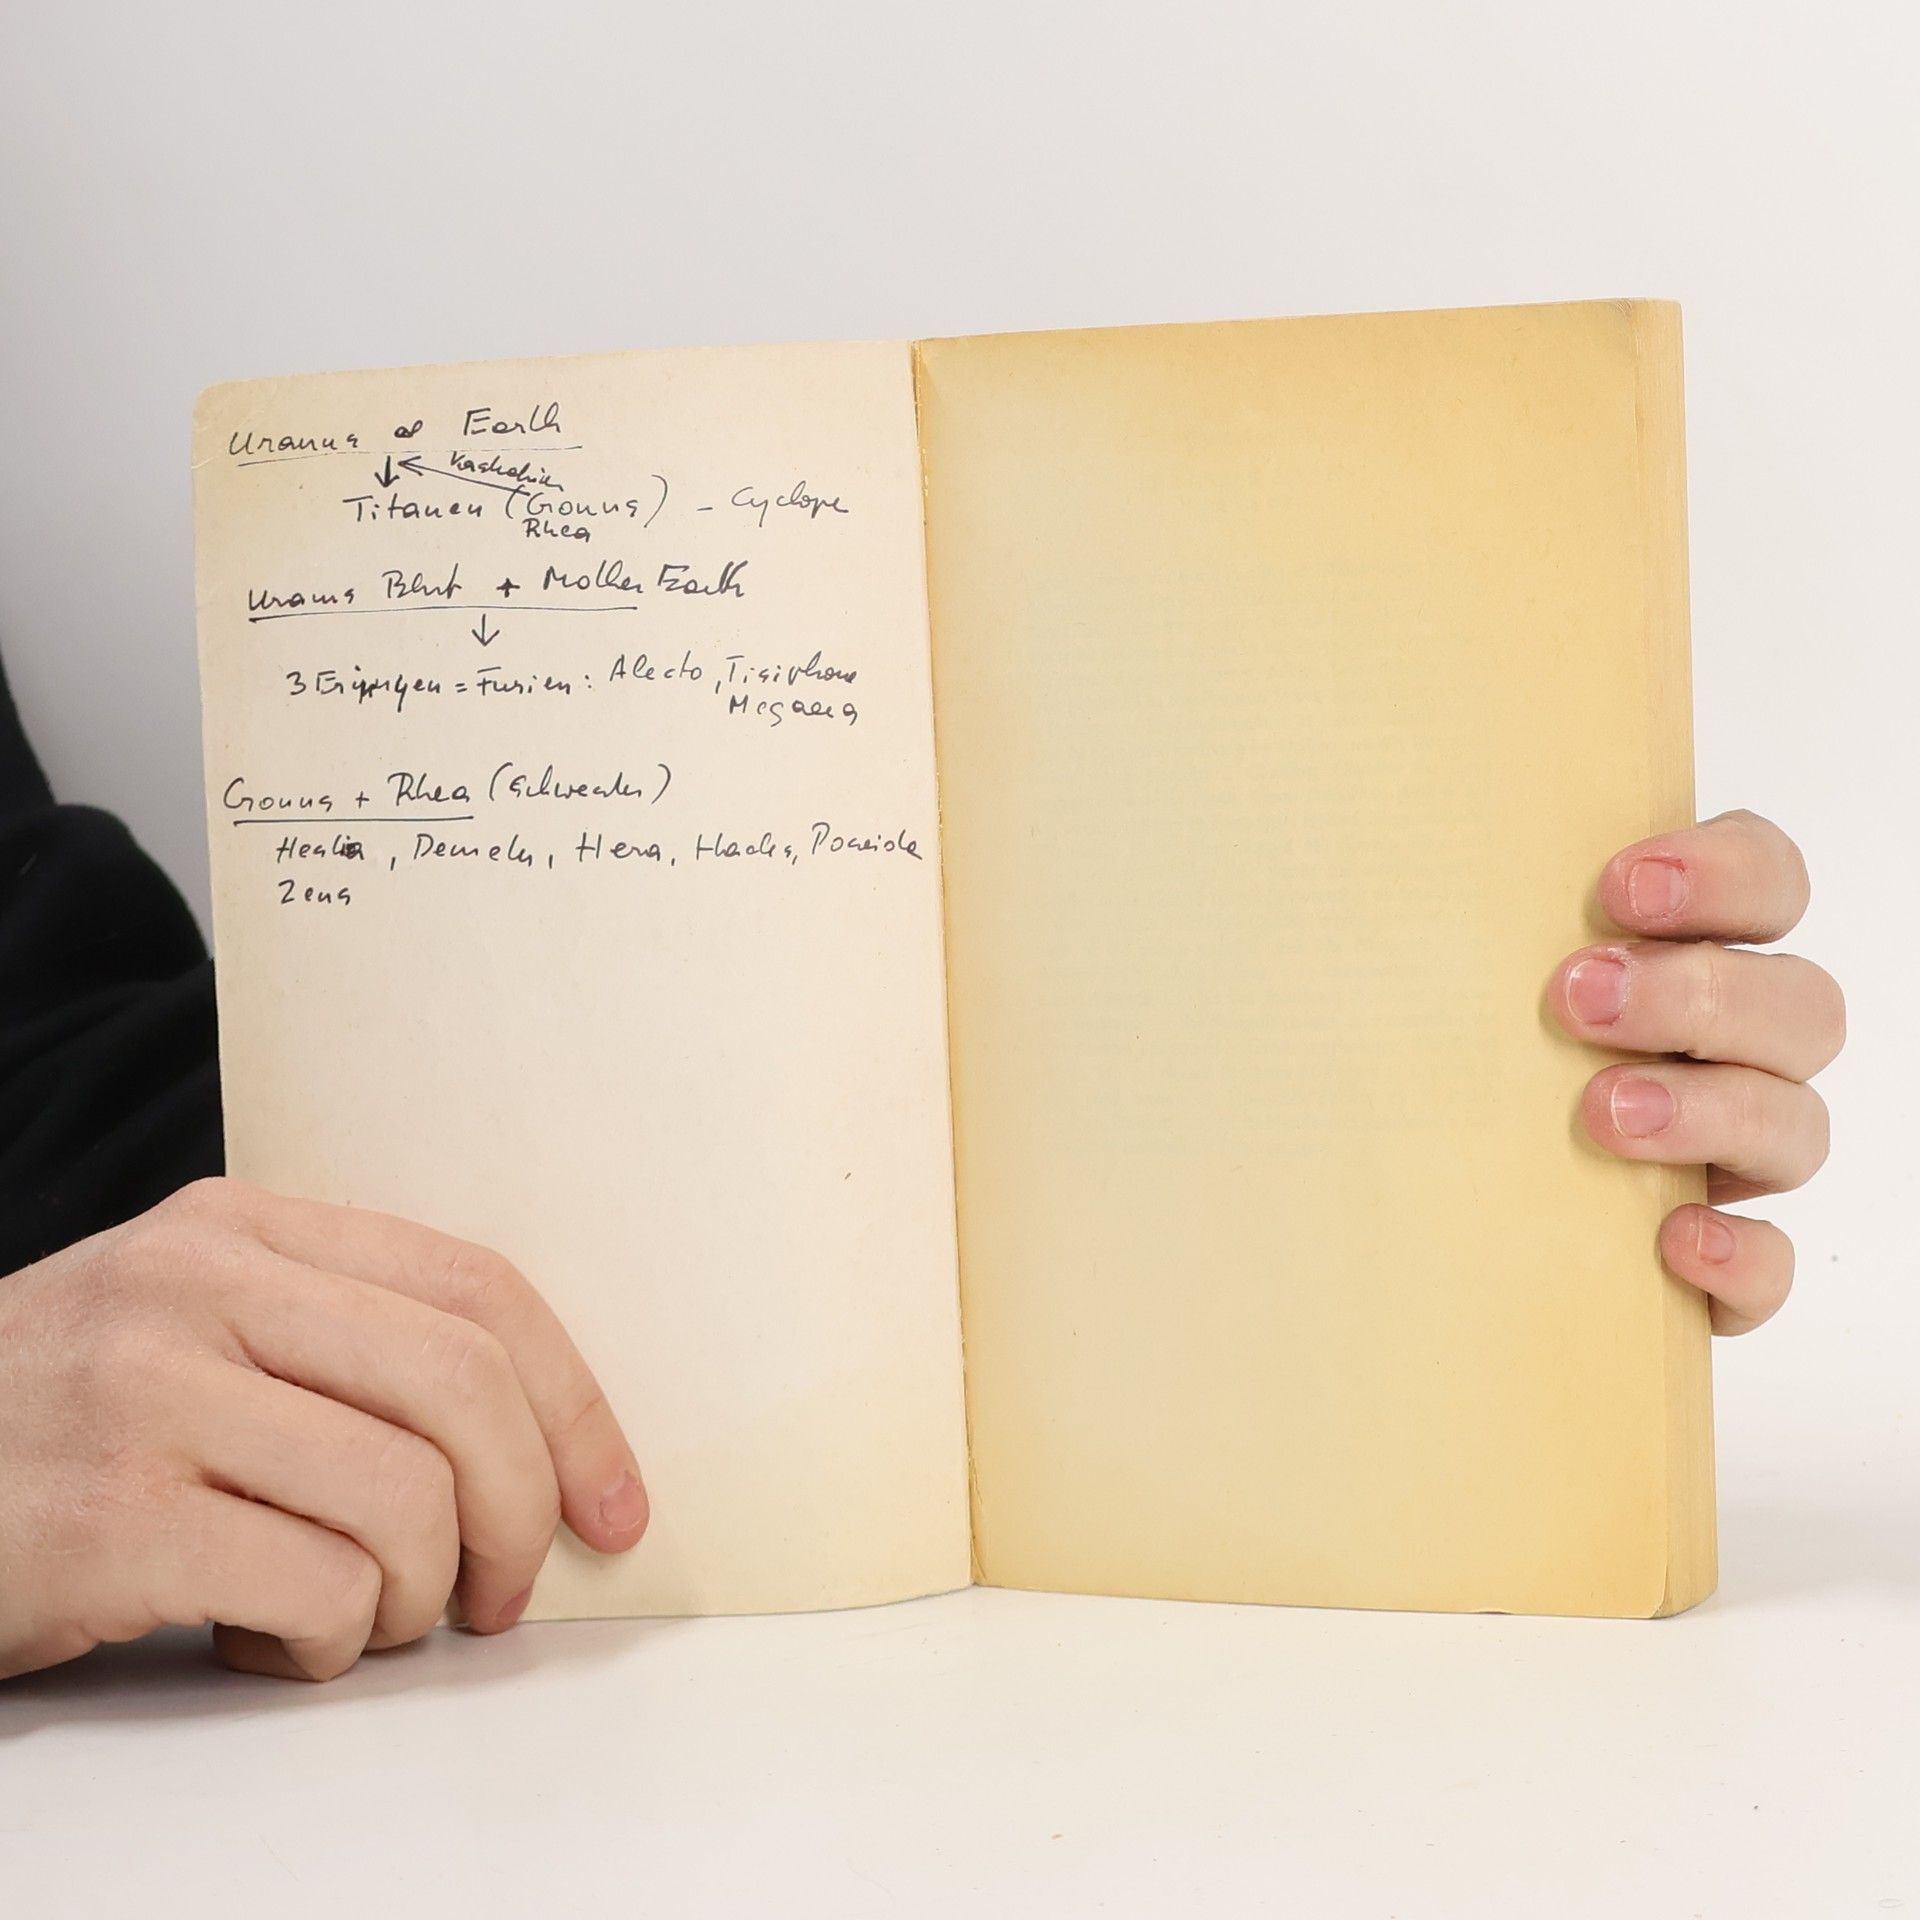 Uranus & Earth
Kastration
Titanen (Cronus) - Cyclope
Rhea
Uranus Blut + Mother Earth
3 Erinnyen = Furien: Alecto, Tisiphone
Megaera
Cronus + Rhea (Schwester)
Hestia, Demeter, Hera, Hades, Poseidon
Zeus